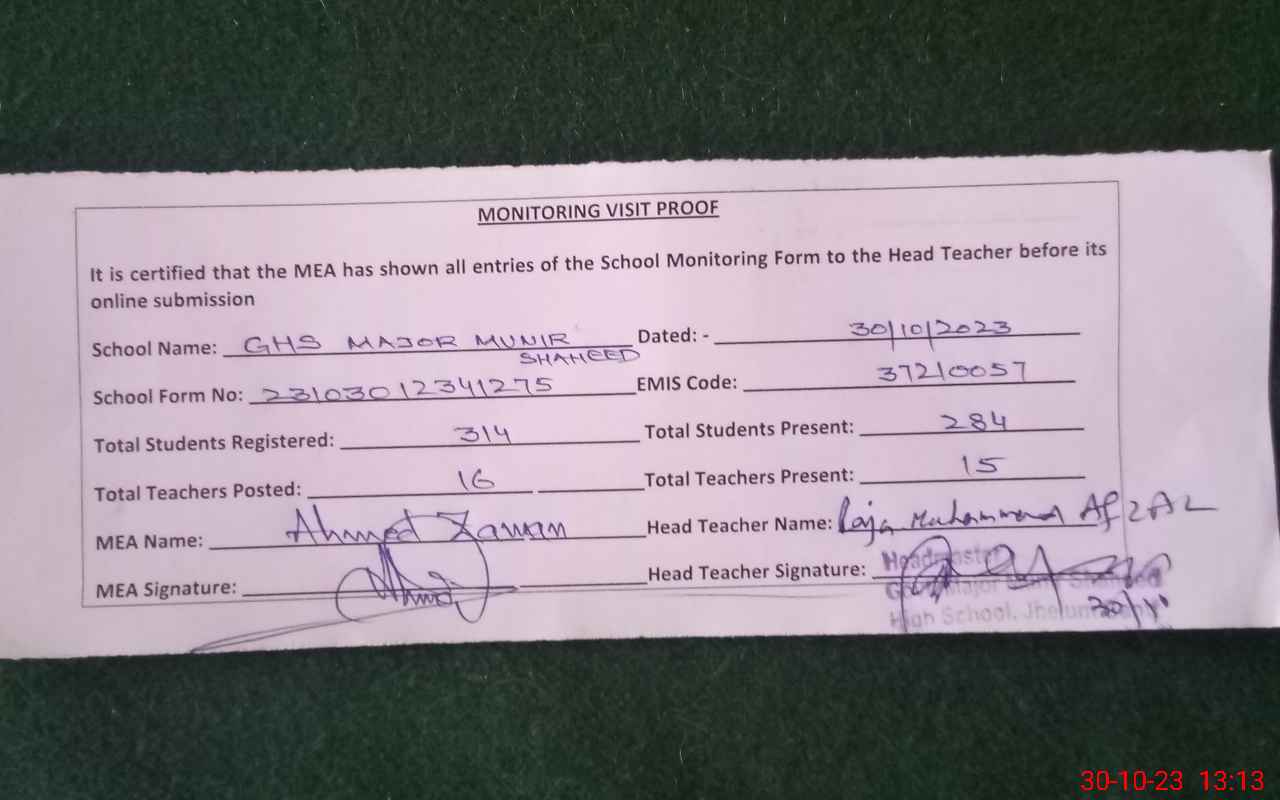 MONITORING VISIT PROOF
It is certified that the MEA has shown all entries of the School Monitoring Form to the Head Teacher before its
online submission
School Name: GHS MAJOR MUNIR SHAHEED Dated: - 30/10/2023
School Form No: 23103012341275 EMIS Code: 37210057
Total Students Registered: 314 Total Students Present: 284
Total Teachers Posted: 16 Total Teachers Present: 15
MEA Name: Ahmed Zaman Head Teacher Name: Raja Muhammad AfzAL
MEA Signature: Ahmed Head Teacher Signature:
Headmaster
Govt Major Shaheed
High School, Jhelum
30/10
30-10-23 13:13